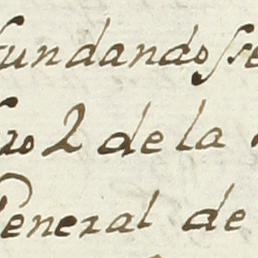 fundandosse
2 de la
General de